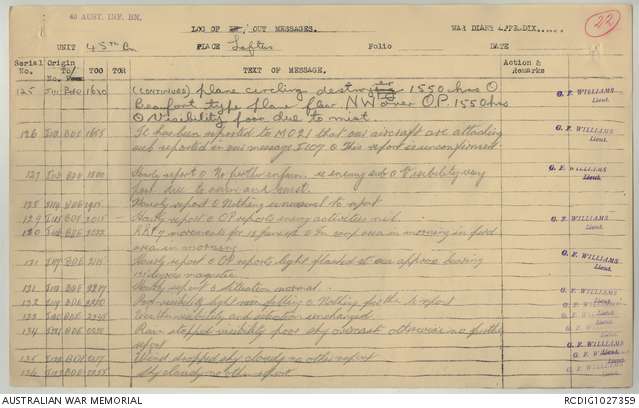 45 AUST. INF. BN.
LOG OF OUT MESSAGES.
WAR DIARY APPENDIX......
22
UNIT 45th Bn PLACE Loftus Folio DATE
Serial No. Origin To/ TOO TOR TEXT OF MESSAGE. Action & Remarks
125 BDE 1630 (CONTINUED) plane circling destroyer 1550 hrs O
Beaufort type plane flew NW over O.P. 1550 hrs
O Visibility poor due to mist.
G. F. WILLIAMS
Lieut.
126 BDE 1655 It has been reported to MO21 that our aircraft are attacking
sub reported in our message I107 O This report is unconfirmed.
G. F. WILLIAMS
Lieut.
127 BDE 1800 Hourly report O No further inform. re enemy sub O Visibility very
poor due to rain and mist.
G. F. WILLIAMS
Lieut.
128 BDE Hourly report O Nothing unusual to report
129 BDE 2015 - Hourly report O OP reports enemy activities nil.
G. F. WILLIAMS
Lieut.
130 BDE movements for in morning in
area in morning
131 BDE Hourly report O OP reports light flashed at sea approx bearing
degrees magnetic
G. F. WILLIAMS
Lieut.
131 BDE Hourly report O Situation normal.
G. F. WILLIAMS
132 BDE visibility light rain falling O Nothing further to report
G. F. WILLIAMS
133 BDE Weather visibility and situation unchanged
G. F. WILLIAMS
134 BDE Rain stopped visibility poor sky overcast otherwise no further
report
G. F. WILLIAMS
Lieut.
135 BDE Wind dropped sky cloudy no other report
G. F. WILLIAMS
136 BDE Sky cloudy no other report
G. F. WILLIAMS
Lieut.
AUSTRALIAN WAR MEMORIAL
RCDIG1027359